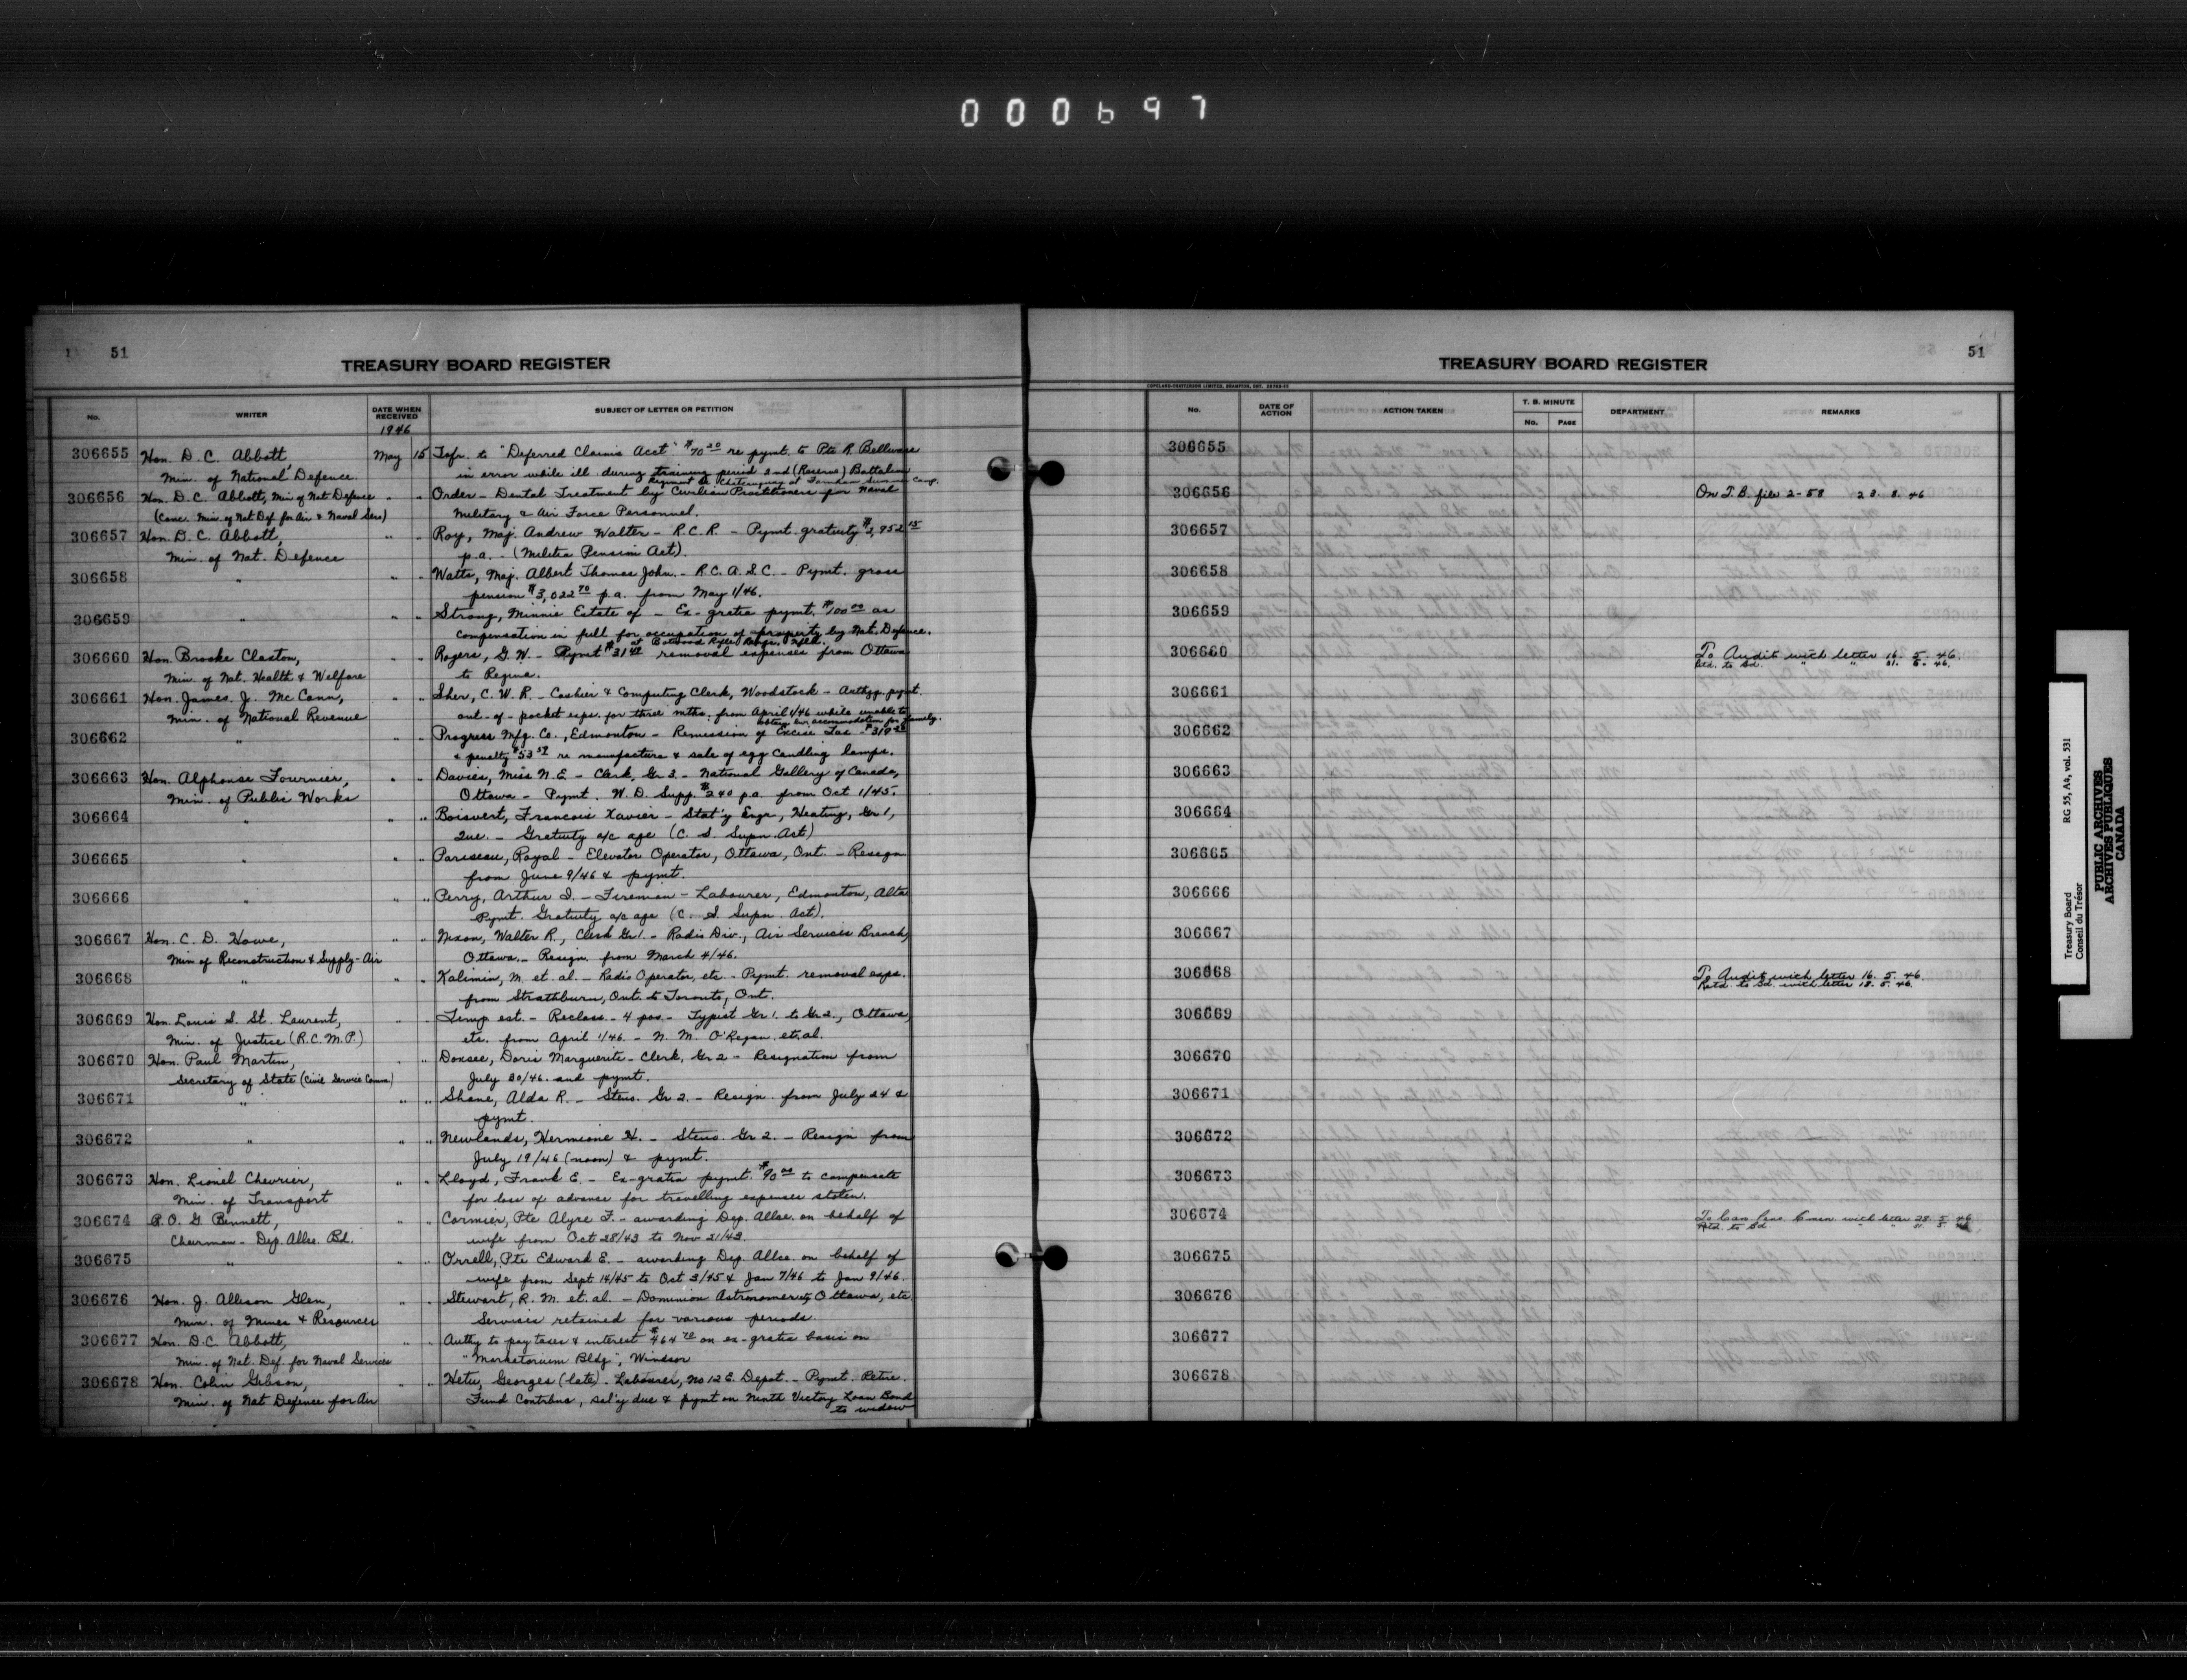 000697
51
TREASURY BOARD REGISTER
No.
WRITER
DATE WHEN RECEIVED
SUBJECT OF LETTER OR PETITION
1946
306655 Hon. D. C. Abbott May 15 Tsfr. to "Deferred Claims Acct" $70 re pymt. to Pte R. Bellware
Min. of National Defence. in error while ill during training period 2nd (Reserve) Battalion
Regiment de Chateauguay at Farnham Summer Camp.
306656 Hon. D. C. Abbott, Min of Nat Defence " " Order - Dental Treatment by Civilian Practitioners for Naval
(Conc. Min. of Nat Def. for Air & Naval Serv) Military & Air Force Personnel.
306657 Hon. D. C. Abbott, " " Roy, Maj. Andrew Walter - R.C.R. - Pymt. gratuity $3,952 15
Min. of Nat. Defence p.a. - (Militia Pension Act).
306658 " " " Watts, Maj. Albert Thomas John. - R.C.A.S.C. - Pymt. gross
pension $3,022 70 p.a. from May 1/46.
306659 " " " Strong, Minnie Estate of - Ex-gratia pymt. $100 00 as
compensation in full for occupation of property by Nat. Defence.
at Rifle Range, Nfld.
306660 Hon. Brooke Claxton, " " Rogers, G. W. - Pymt $31 removal expenses from Ottawa
Min. of Nat. Health & Welfare to Regina.
306661 Hon. James. J. McCann, " " Sher, C. W. R. - Cashier & Computing Clerk, Woodstock - Authzg. pymt.
Min. of National Revenue out-of-pocket exps. for three mths. from April 1/46 while unable to
obtain liv. accommodation for family.
306662 " " " Progress Mfg. Co., Edmonton - Remission of Excise Tax - $319
& penalty $53 re manufacture & sale of egg candling lamps.
306663 Hon. Alphonse Fournier, " " Davies, Miss N. E. - Clerk, Gr 3. - National Gallery of Canada,
Min. of Public Works Ottawa - Pymt. W. D. Supp. $240 p.a. from Oct 1/45.
306664 " " " Boisvert, Francois Xavier - Stat'y Engr, Heating, Gr 1,
Que. - Gratuity a/c age (C. S. Supn. Act)
306665 " " " Pariseau, Royal - Elevator Operator, Ottawa, Ont. - Resign
from June 9/46 & pymt.
306666 " " " Perry, Arthur I. - Fireman - Labourer, Edmonton, Alta
Pymt. Gratuity a/c age (C. S. Supn. Act).
306667 Hon. C. D. Howe, " " Nixon, Walter R., Clerk Gr 1. - Radio Div., Air Services Branch,
Min of Reconstruction & Supply - Air Ottawa. - Resign. from March 4/46.
306668 " " " Kalimin, M. et. al. - Radio Operator, etc. - Pymt. removal exps.
from Strathburn, Ont. to Toronto, Ont.
306669 Hon. Louis S. St. Laurent, " " Temp est. - Reclass. - 4 pos. - Typist Gr 1. to Gr 2., Ottawa,
Min. of Justice (R.C.M.P.) etc. from April 1/46. - N. M. O'Regan et. al.
306670 Hon. Paul Martin, " " Doxsee, Doris Marguerite - Clerk, Gr 2 - Resignation from
Secretary of State (Civil Service Comm) July 20/46. and pymt.
306671 " " " Shane, Alda R. - Steno. Gr 2. - Resign. from July 24 &
pymt.
306672 " " " Newlands, Hermione H. - Steno. Gr 2. - Resign from
July 19/46 (noon) & pymt.
306673 Hon. Lionel Chevrier, " " Lloyd, Frank E. - Ex-gratia pymt. $90 00 to compensate
Min. of Transport for loss of advance for travelling expenses stolen.
306674 R. O. G Bennett, " " Cormier, Pte Alyre F. - awarding Dep. Allce. on behalf of
Chairman - Dep. Allce. Bd. wife from Oct 28/43 to Nov 21/43.
306675 " " " Orrell, Pte Edward E. - awarding Dep. Allce. on behalf of
wife from Sept 14/45 to Oct 3/45 & Jan 7/46 to Jan 9/46.
306676 Hon. J. Allison Glen, " " Stewart, R. M. et. al. - Dominion Astronomer, Ottawa, etc.
Min. of Mines & Resources Services retained for various periods.
306677 Hon. D. C. Abbott, " " Authy to pay taxes & interest $464 72 on ex-gratia basis on
Min. of Nat. Def. for Naval Services "Marketorium Bldg", Windsor
306678 Hon. Colin Gibson, " " Hetu, Georges (late) - Labourer, No 12 E. Depot. - Pymt. Retire.
Min. of Nat Defence for Air Fund Contrbns, sal'y due & pymt on Ninth Victory Loan Bond
to widow
TREASURY BOARD REGISTER
51
COPELAND-CHATTERSON LIMITED, BRAMPTON, ONT.
No.
DATE OF ACTION
ACTION TAKEN
T. B. MINUTE
No.
PAGE
DEPARTMENT
REMARKS
306655
306656 On T. B. file 2-58 23. 8. 46
306657
306658
306659
306660 To Audit with letter 16. 5. 46.
Rtd. to Bd. " " 21. 5. 46.
306661
306662
306663
306664
306665
306666
306667
306668 To Audit with letter 16. 5. 46.
Retd. to Bd. with letter 18. 5. 46.
306669
306670
306671
306672
306673
306674 To Can Pens Commn with letter 28. 5. 46
Retd. to Bd.
306675
306676
306677
306678
Treasury Board RG 55, A4, vol. 531
Conseil du Trésor
PUBLIC ARCHIVES
ARCHIVES PUBLIQUES
CANADA